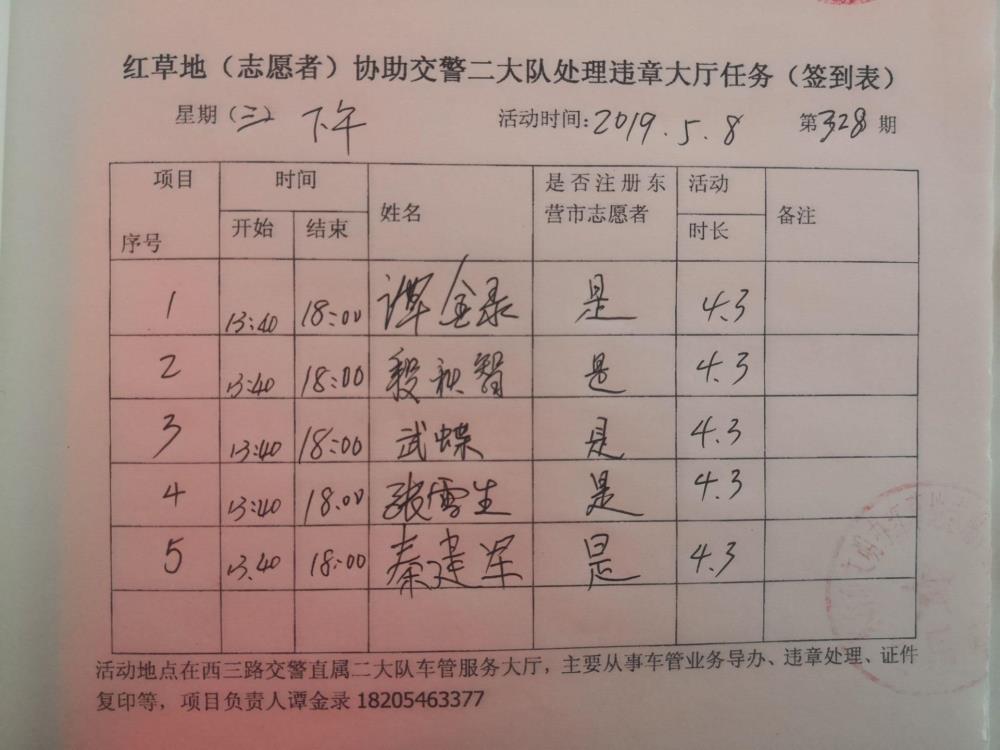 红草地（志愿者）协助交警二大队处理违章大厅任务（签到表）
星期（三） 下午 活动时间：2019.5.8 第328期
项目 时间 姓名 是否注册东营市志愿者 活动时长 备注
序号 开始 结束
1 13:40 18:00 谭金录 是 4.3
2 13:40 18:00 秋智 是 4.3
3 13:40 18:00 武蝶 是 4.3
4 13:40 18:00 张雪生 是 4.3
5 13.40 18:00 秦建军 是 4.3
活动地点在西三路交警直属二大队车管服务大厅，主要从事车管业务导办、违章处理、证件
复印等，项目负责人谭金录 18205463377